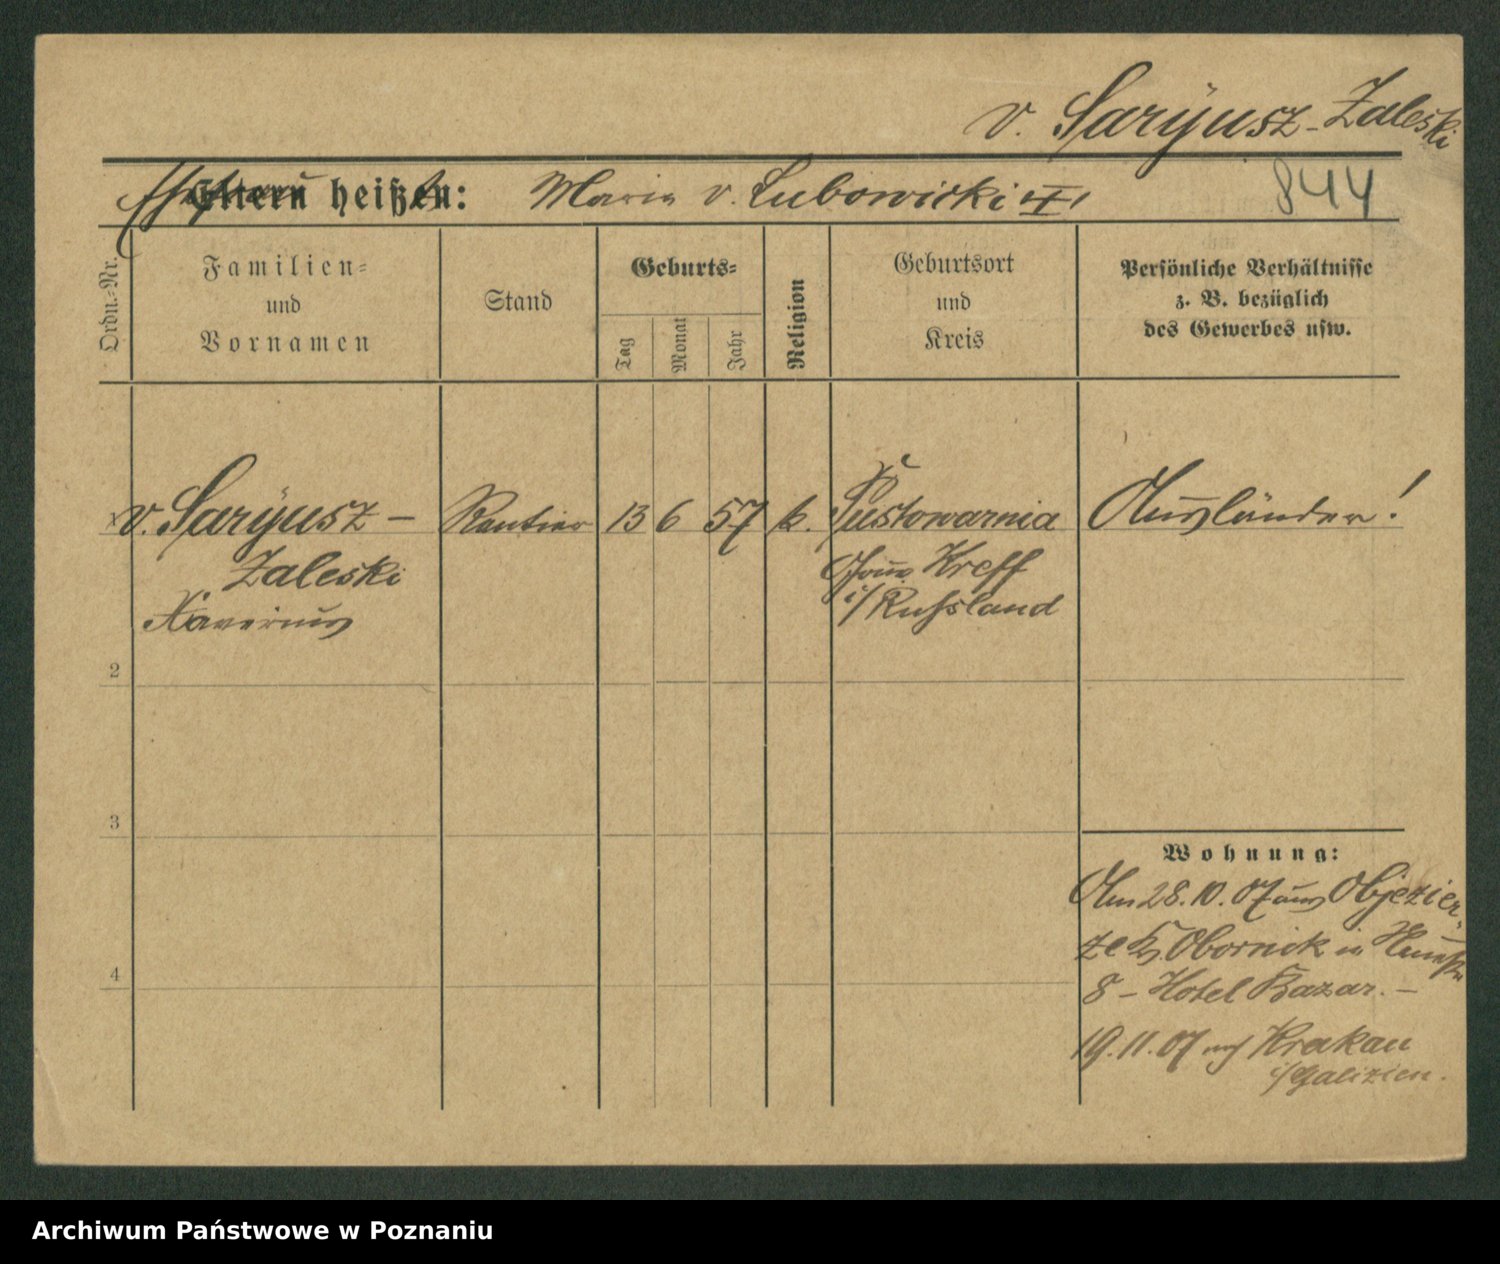 v. Sarÿusz-Zaleski
Eltern heißen: Maria v. Lubowicki
844
Ordn.-Nr.
Familien-
und
Vornamen
Stand
Geburts-
Tag
Monat
Jahr
Religion
Geburtsort
und
Kreis
Persönliche Verhältnisse
z. B. bezüglich
des Gewerbes usw.
v. Sarÿusz-
Zaleski
Xaverius
Rentier
13
6
57
k.
Pustowarnia
Gouv. Kreff
i/Russland
Ausländer!
2
3
4
Wohnung:
Am 28.10.07 aus Objezier-
ze Kr. Obornick in
8 - Hotel Bazar. -
19.11.07 nch Krakau
i/Galizien.
Archiwum Państwowe w Poznaniu